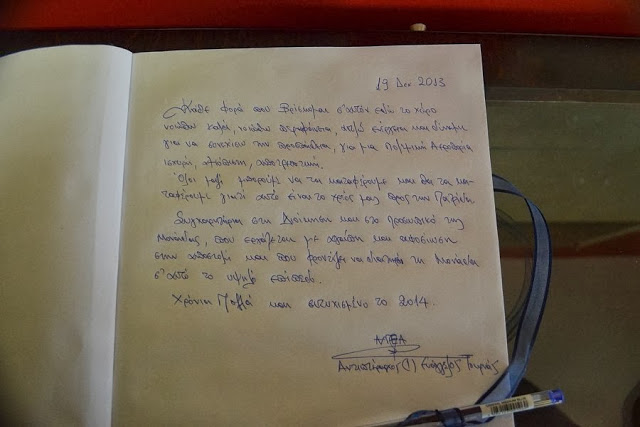 19 Δεκ 2013
Κάθε φορά που βρίσκομαι σ'αυτόν εδώ το χώρο
νοιώθω καλά, νοιώθω περηφάνεια, παίρνω ενέργεια και δύναμη
για να συνεχίσω την προσπάθεια, για μια Πολεμική Αεροπορία
ισχυρή, αξιόπιστη, αποτρεπτική.
Όλοι μαζί μπορούμε να τα καταφέρουμε και θα τα κα-
ταφέρουμε γιατί αυτό είναι το χρέος μας προς την Πατρίδα
Συγχαρητήρια στη Διοίκηση και στο προσωπικό της
Μονάδας, που εργάζεται με αγάπη και αφοσίωση
στην αποστολή και που φροντίζει να διατηρεί τη Μονάδα
σ'αυτό το υψηλό επίπεδο.
Χρόνια Πολλά και ευτυχισμένο το 2014.
Αντιπτέραρχος (Ι) Ευάγγελος Τουρνάς